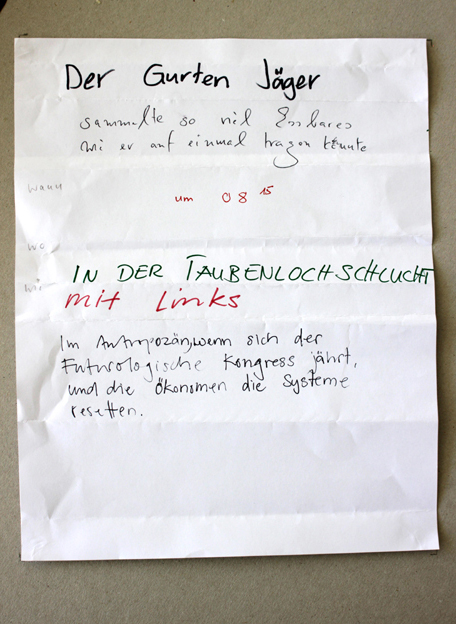 Der Gurten Jäger
sammelte so viel Essbares
wie er auf einmal tragen könnte
wann
um 08 15
wo
IN DER TAUBENLOCHSCHLUCHT
wie
mit Links
Im Antropozän, wenn sich der
Futurologische Kongress jährt,
und die Ökonomen die Systeme
resetten.